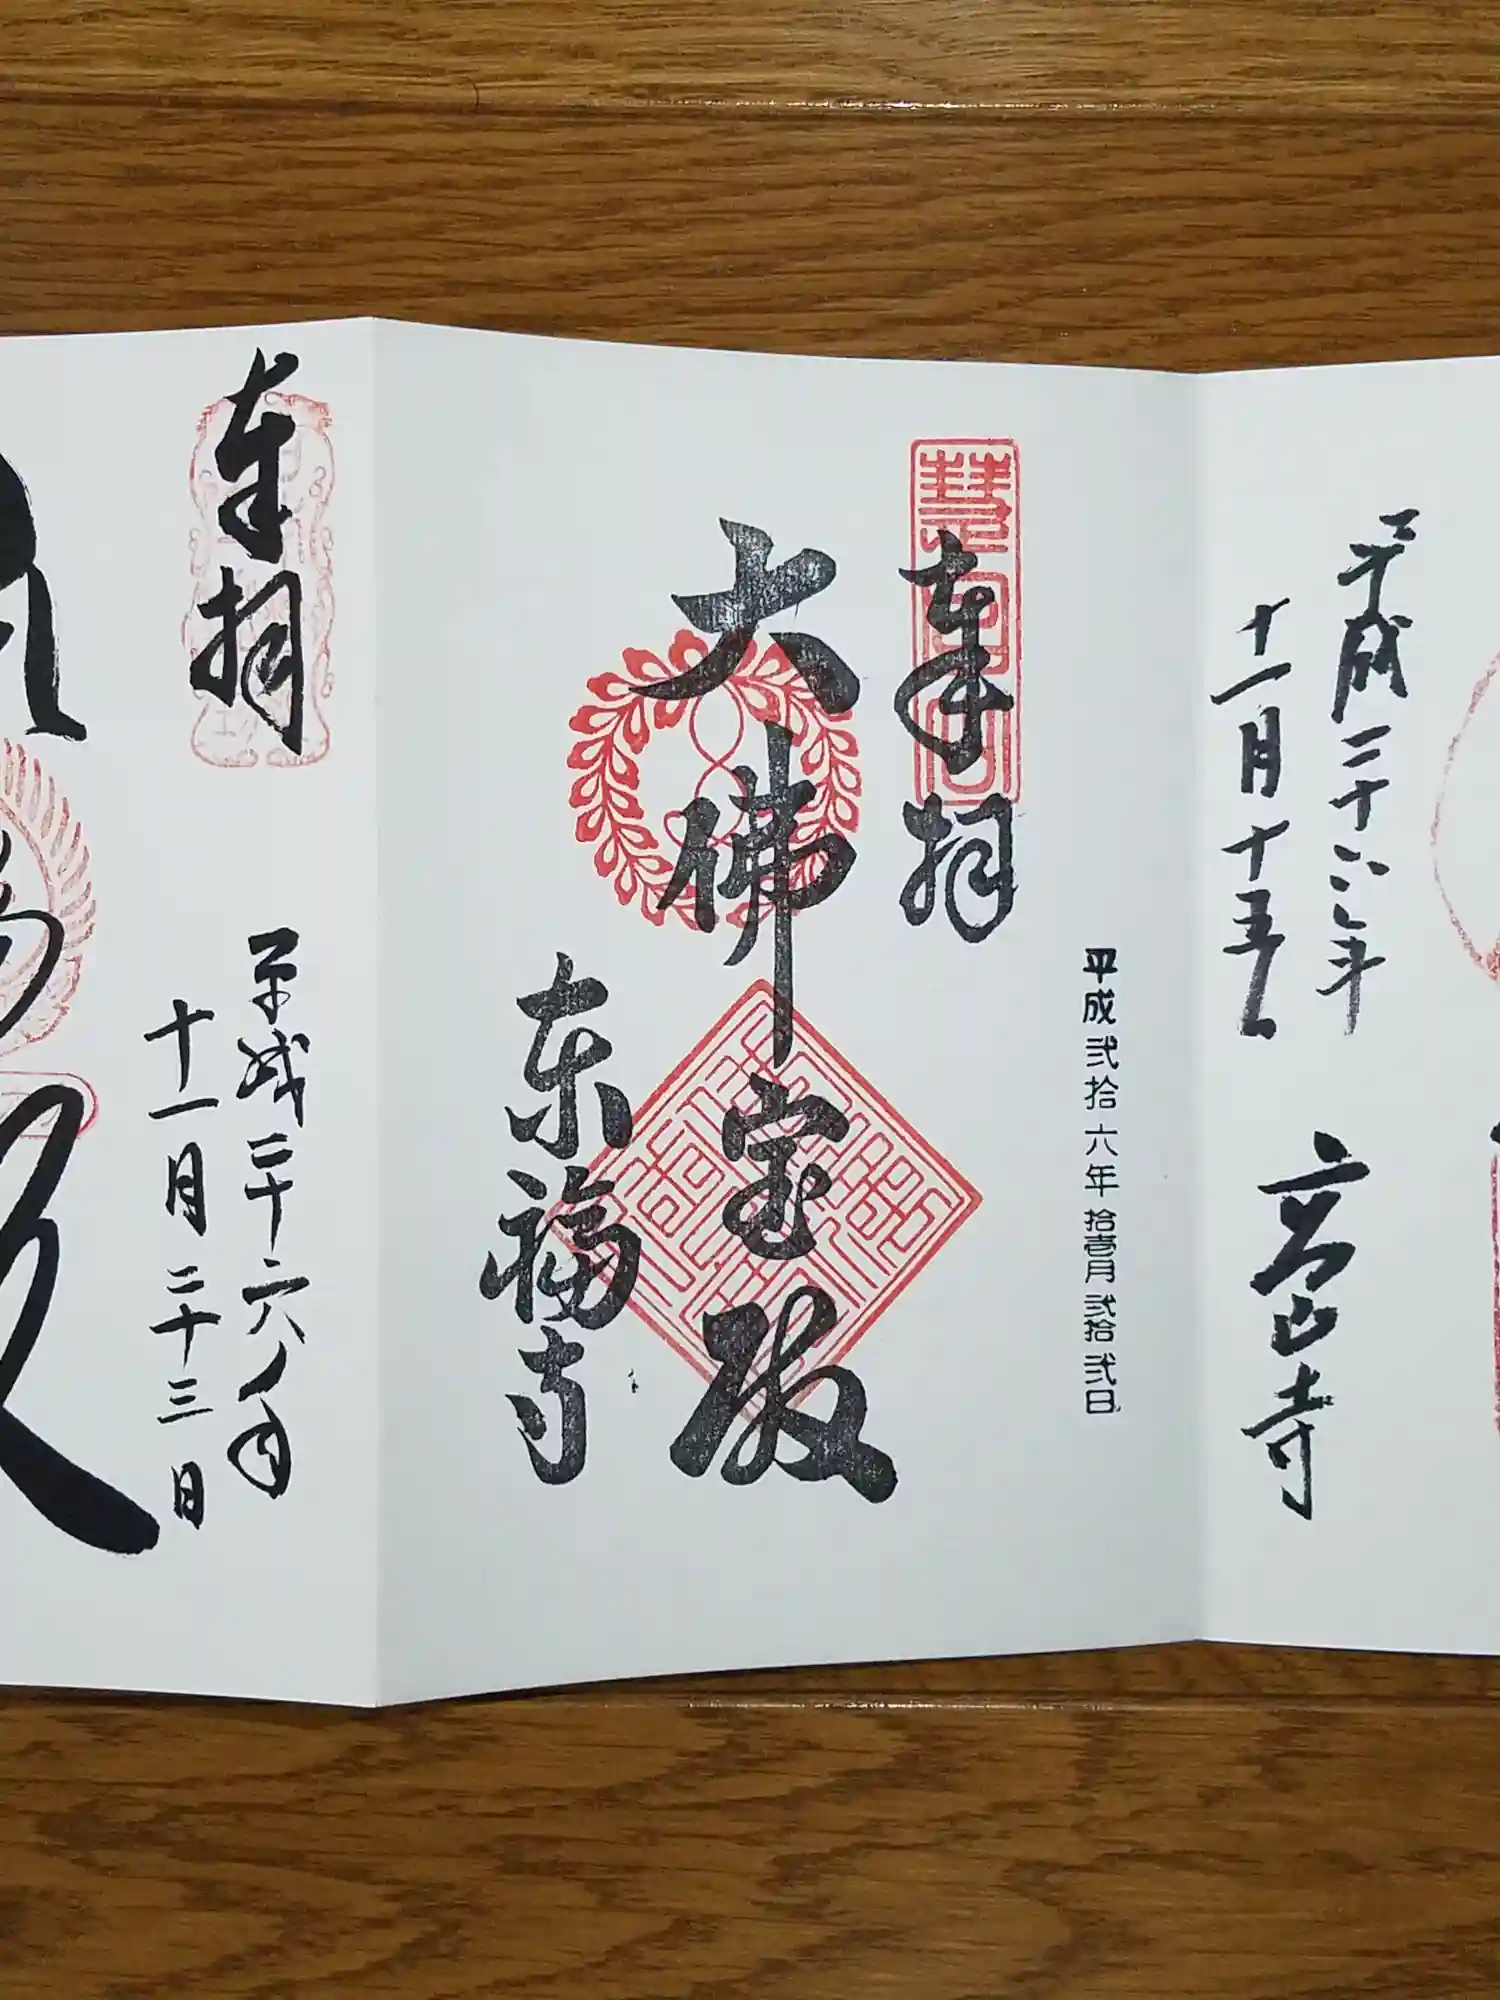 平成二十六年
十一月十五日
高山寺
奉拝
平成弐拾六年拾壱月弐拾弐日
大佛宝殿
東福寺
奉拝
平成二十六年
十一月二十三日